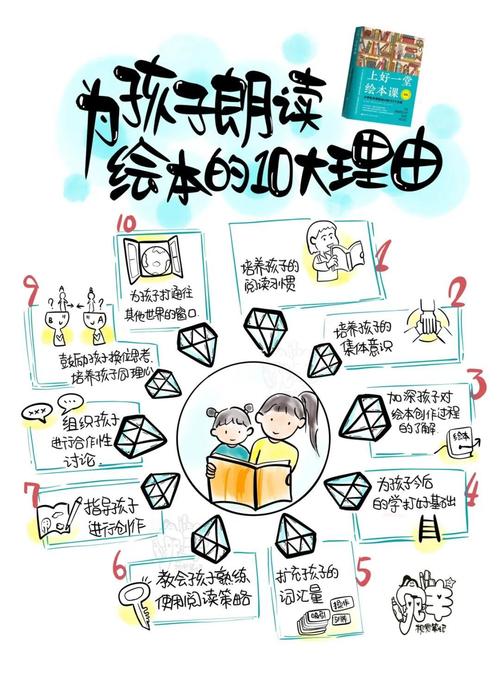 为孩子朗读
绘本的10大理由
上好一堂
绘本课
1
培养孩子的
阅读习惯
2
培养孩子的
集体意识
3
加深孩子对
绘本创作过程
的了解
绘本
4
为孩子今后
的学打好基础
5
扩充孩子的
词汇量
6
教会孩子熟练
使用阅读策略
7
指导孩子
进行创作
组织孩子
进行合作性
讨论
9
B
A
鼓励孩子换位思考
培养孩子同理心
10
为孩子打通往
其他世界的窗口
视觉笔记